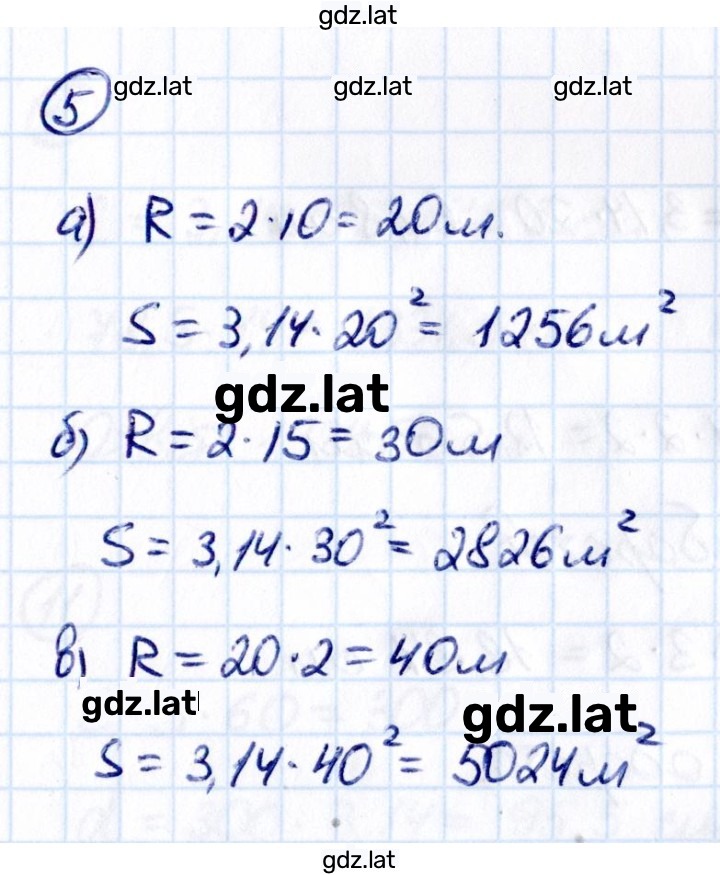 gdz.lat
5 gdz.lat gdz.lat gdz.lat
а) R = 2·10 = 20м.
S = 3,14·20² = 1256м²
gdz.lat
б) R = 2·15 = 30м
S = 3,14·30² = 2826м²
в) R = 20·2 = 40м
gdz.lat gdz.lat
S = 3,14·40² = 5024м²
gdz.lat